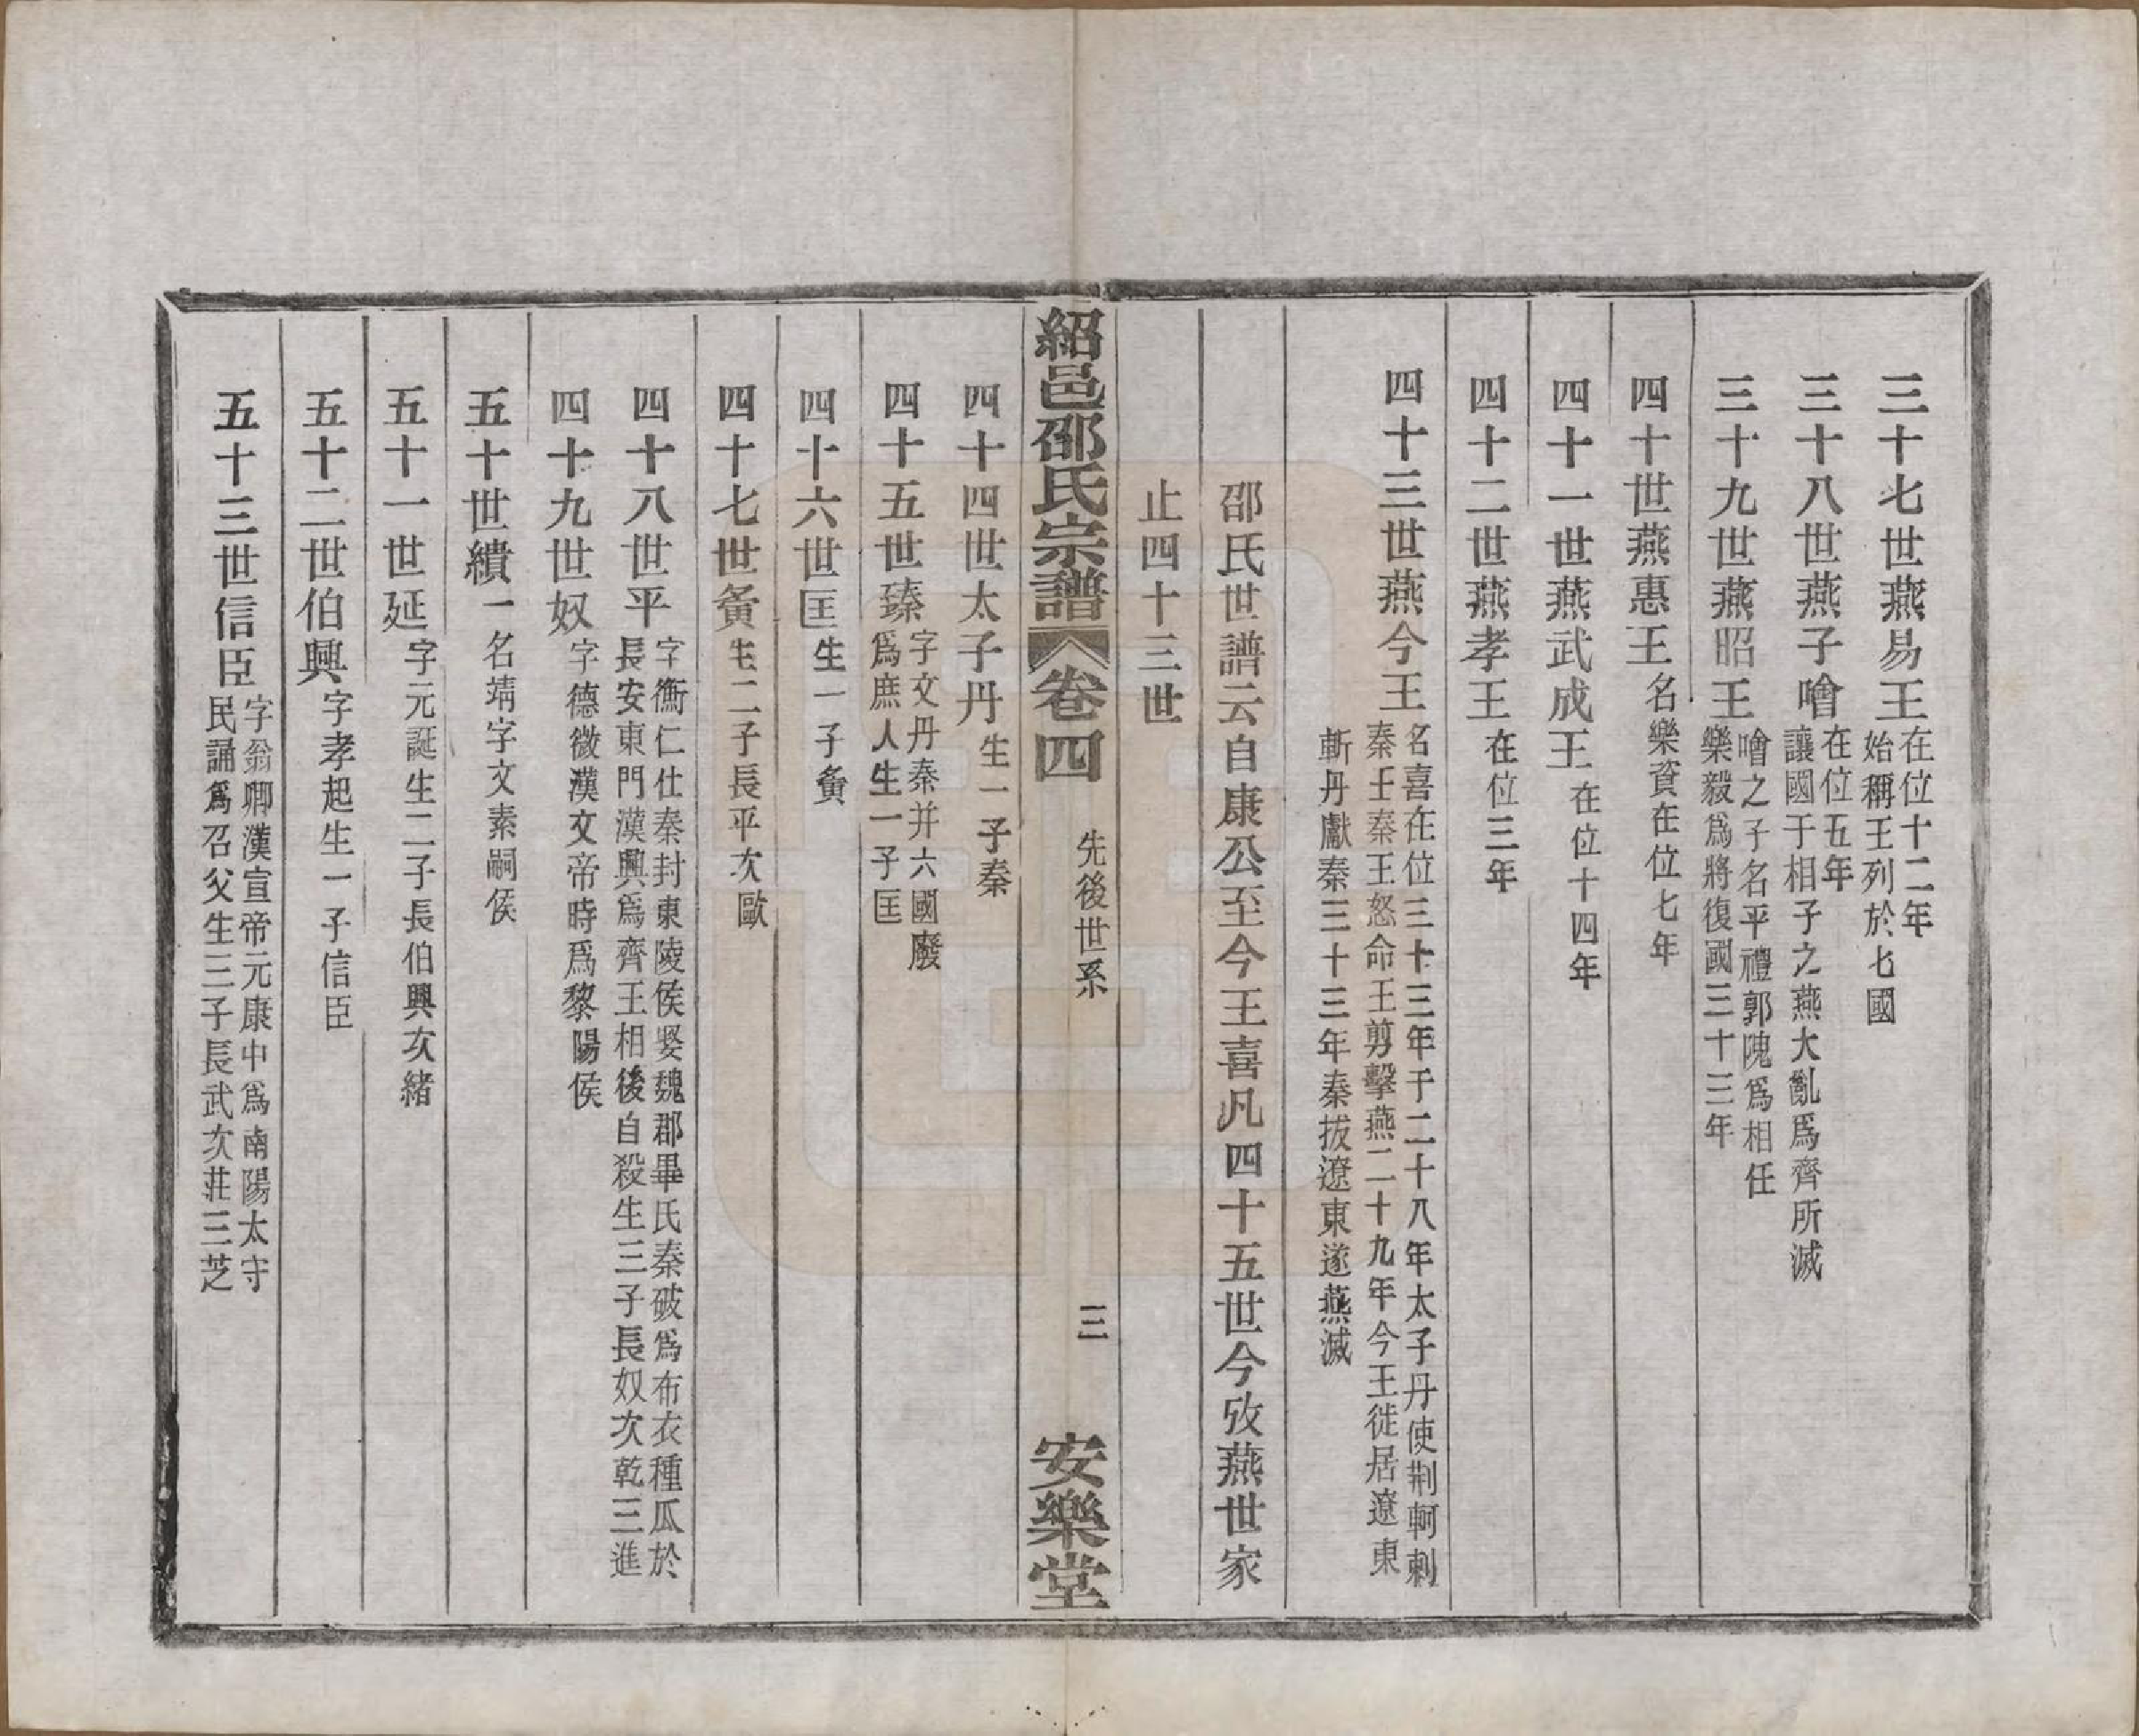 三十七世燕易王在位十二年
始稱王列於七國
三十八世燕子噲在位五年
讓國于相子之燕大亂爲齊所滅
三十九世燕昭王噲之子名平禮郭隗爲相任
樂毅爲將復國三十三年
四十世燕惠王名樂資在位七年
四十一世燕武成王在位十四年
四十二世燕孝王在位三年
四十三世燕今王名喜在位三十三年于二十八年太子丹使荆軻刺
秦王秦王怒命王剪擊燕二十九年今王徙居遼東
斬丹獻秦三十三年秦拔遼東遂燕滅
邵氏世譜云自康公至今王喜凡四十五世今攷燕世家
止四十三世
紹邑邵氏宗譜 卷四 先後世系 三 安樂堂
四十四世太子丹生一子秦
四十五世臻字文丹秦并六國廢
爲庶人生一子匡
四十六世匡生一子夤
四十七世夤生二子長平次歐
四十八世平字衡仁仕秦封東陵侯娶魏郡畢氏秦破爲布衣種瓜於
長安東門漢興爲齊王相後自殺生三子長奴次乾三進
四十九世奴字德微漢文帝時爲黎陽侯
五十世續一名靖字文素嗣侯
五十一世延字元誕生二子長伯興次緒
五十二世伯興字孝起生一子信臣
五十三世信臣字翁卿漢宣帝元康中爲南陽太守
民誦爲召父生三子長武次莊三芝